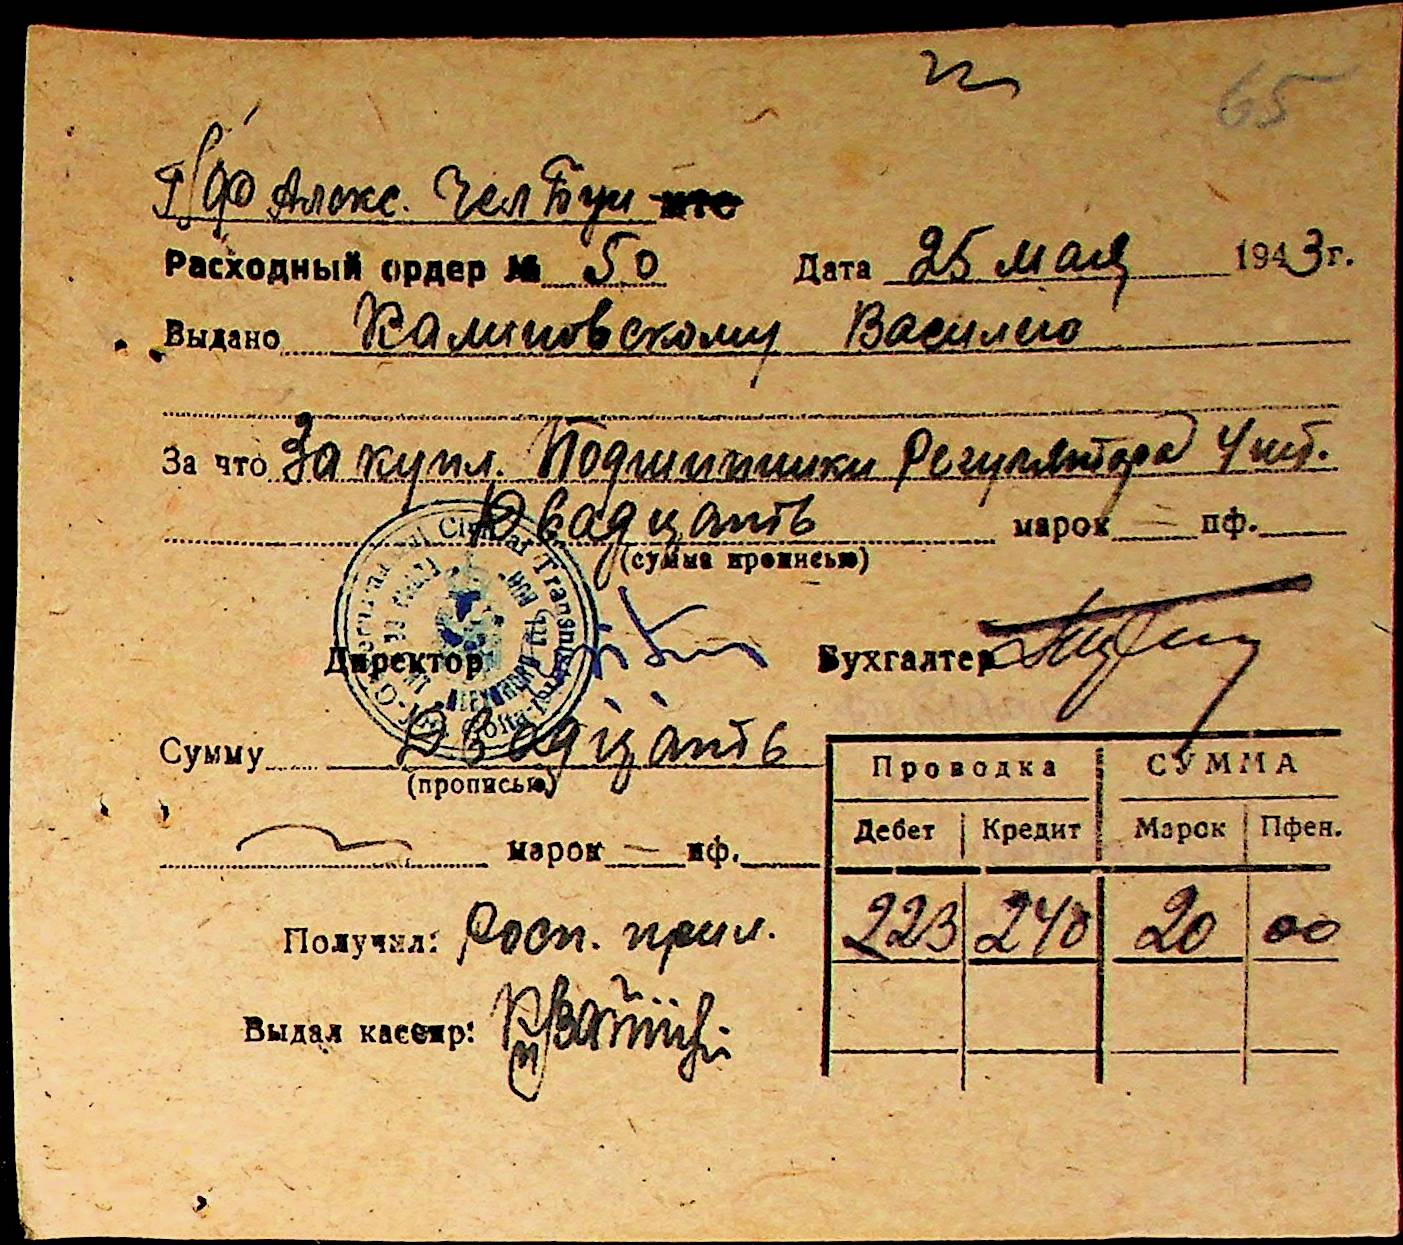 65
Алекс. мтс
Расходный ордер № 50 Дата 25 мая 1943г.
Выдано Калиновскому Василию
За что За купл. Подшипники Регулятора 4 шт.
Двадцать марок — пф.
(сумма прописью)
Директор Бухгалтер
Сумму Двадцать
(прописью)
марок — пф.
Проводка СУММА
Дебет Кредит Марок Пфен.
223 240 20 00
Получил: Росп. прил.
Выдал кассир: